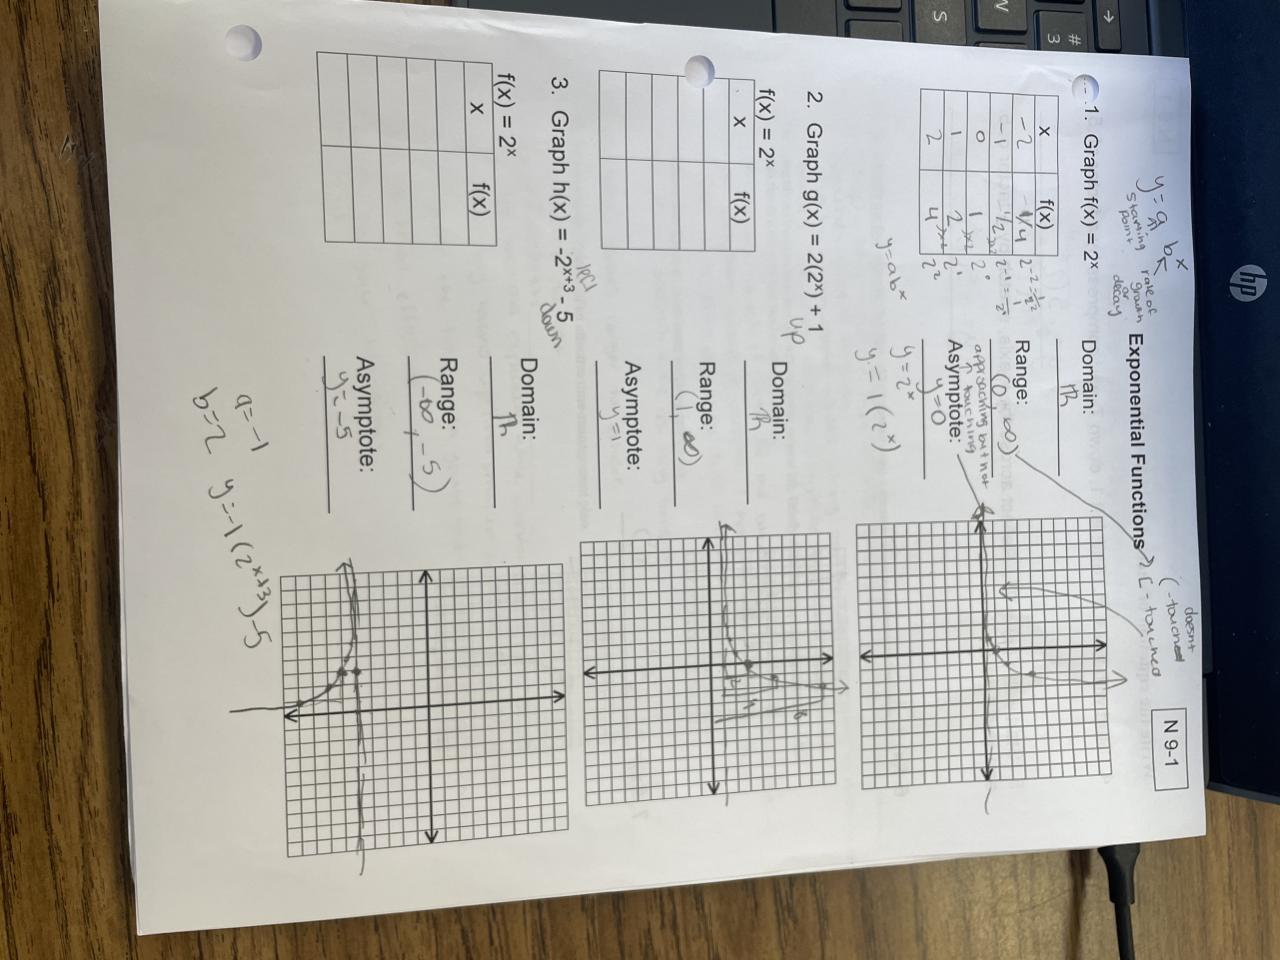 y = a b^x
starting point
rate of growth or decay
Exponential Functions
( - doesnt touched
[ - touched
N 9-1
1. Graph f(x) = 2^x
x f(x)
-2 1/4 2^-2 = 1/2^2
-1 1/2 2^-1 = 1/2^1
0 1 2^0
1 2 2^1
2 4 2^2
y=ab^x
Domain:
ℝ
Range:
(0, ∞)
approaching but not touching
y=0
Asymptote:
y=2^x
y=1(2^x)
2. Graph g(x) = 2(2^x) + 1
up
f(x) = 2^x
x f(x)
Domain:
ℝ
Range:
(1, ∞)
Asymptote:
y=1
2
4
8
3. Graph h(x) = -2^x+3 - 5
down
f(x) = 2^x
x f(x)
Domain:
ℝ
Range:
(-∞, -5)
Asymptote:
y=-5
a=-1
b=2
y=-1(2^x+3)-5
hp
#
3
N
S